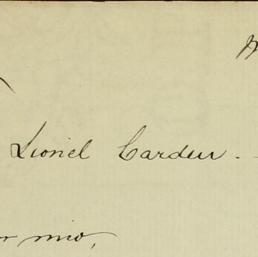 Lionel Carden.
mio,